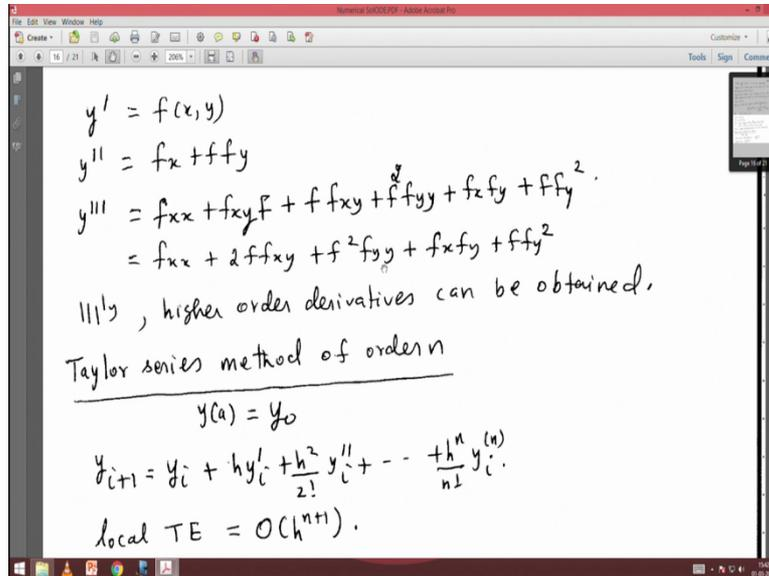 Numerical SolODE.PDF - Adobe Acrobat Pro
File Edit View Window Help
Create Customize
16 / 21 206% Tools Sign Comme
y' = f(x,y)
y'' = fx + ffy
y''' = fxx + fxyf + ffxy + f²fyy + fxfy + ffy².
= fxx + 2ffxy + f²fyy + fxfy + ffy²
|||ly, higher order derivatives can be obtained.
Page 16 of 21
Taylor series method of order n
y(a) = y₀
yᵢ₊₁ = yᵢ + hy'ᵢ + h²/2! y''ᵢ + -- + hⁿ/n! yᵢ⁽ⁿ⁾.
local TE = O(hⁿ⁺¹).